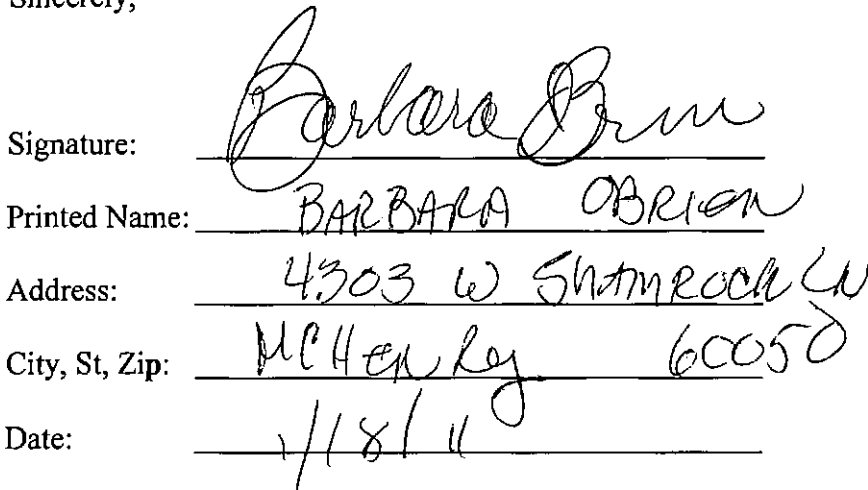 Sincerely,
Signature: Barbara OBrien
Printed Name: BARBARA OBRIEN
Address: 4303 W SHAMROCK LN
City, St, Zip: MCHENRy 60050
Date: 1/18/11